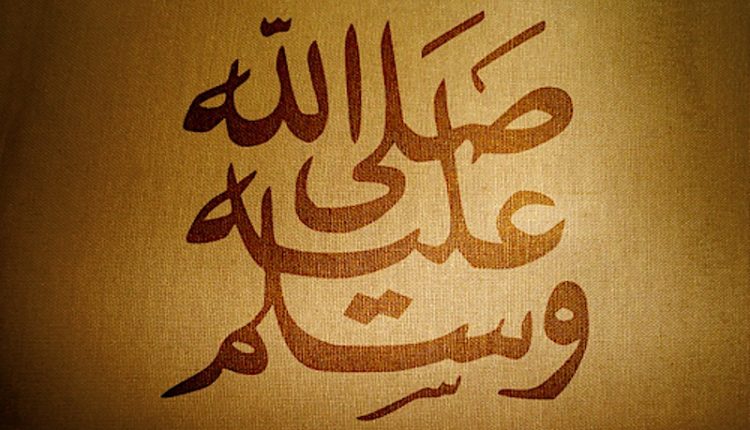 صَلَى اللّه
عليه
وسلم